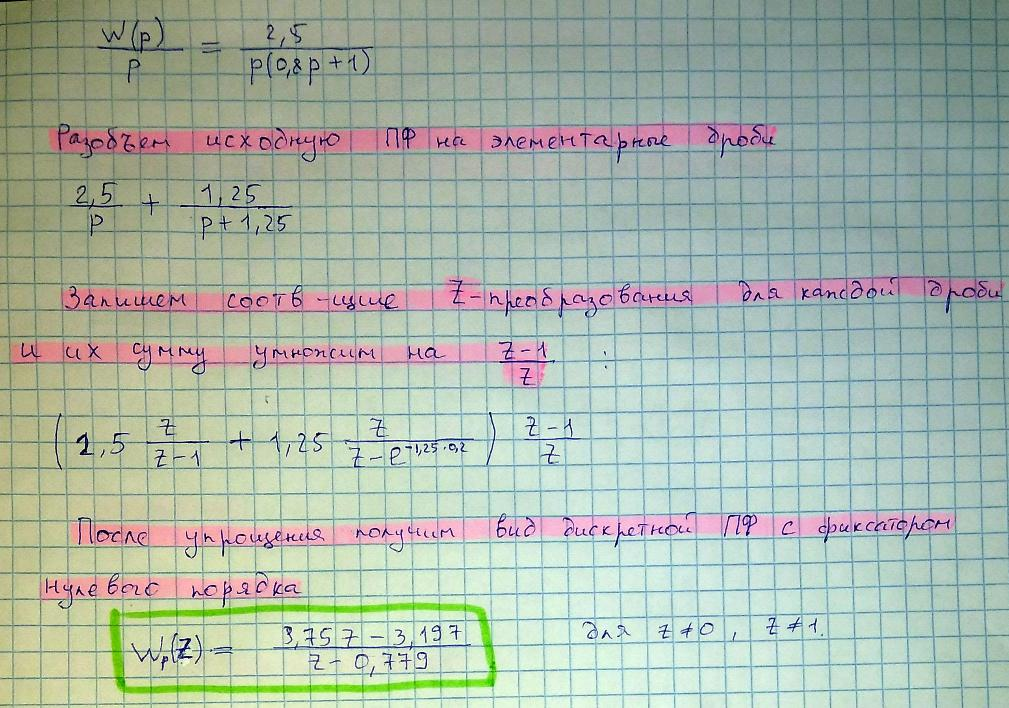 W(p)/p = 2,5/p(0,8p+1)
Разобъем исходную ПФ на элементарные дроби
2,5/p + 1,25/p+1,25
Запишем соотв-щие Z-преобразования для каждой дроби
и их сумму умножим на z-1/z :
(2,5 z/z-1 + 1,25 z/z-e^-1,25·0,2) z-1/z
После упрощения получим вид дискретной ПФ с фиксатором
нулевого порядка
Wp(z) = 3,75z-3,197/z-0,779 для z≠0, z≠1.